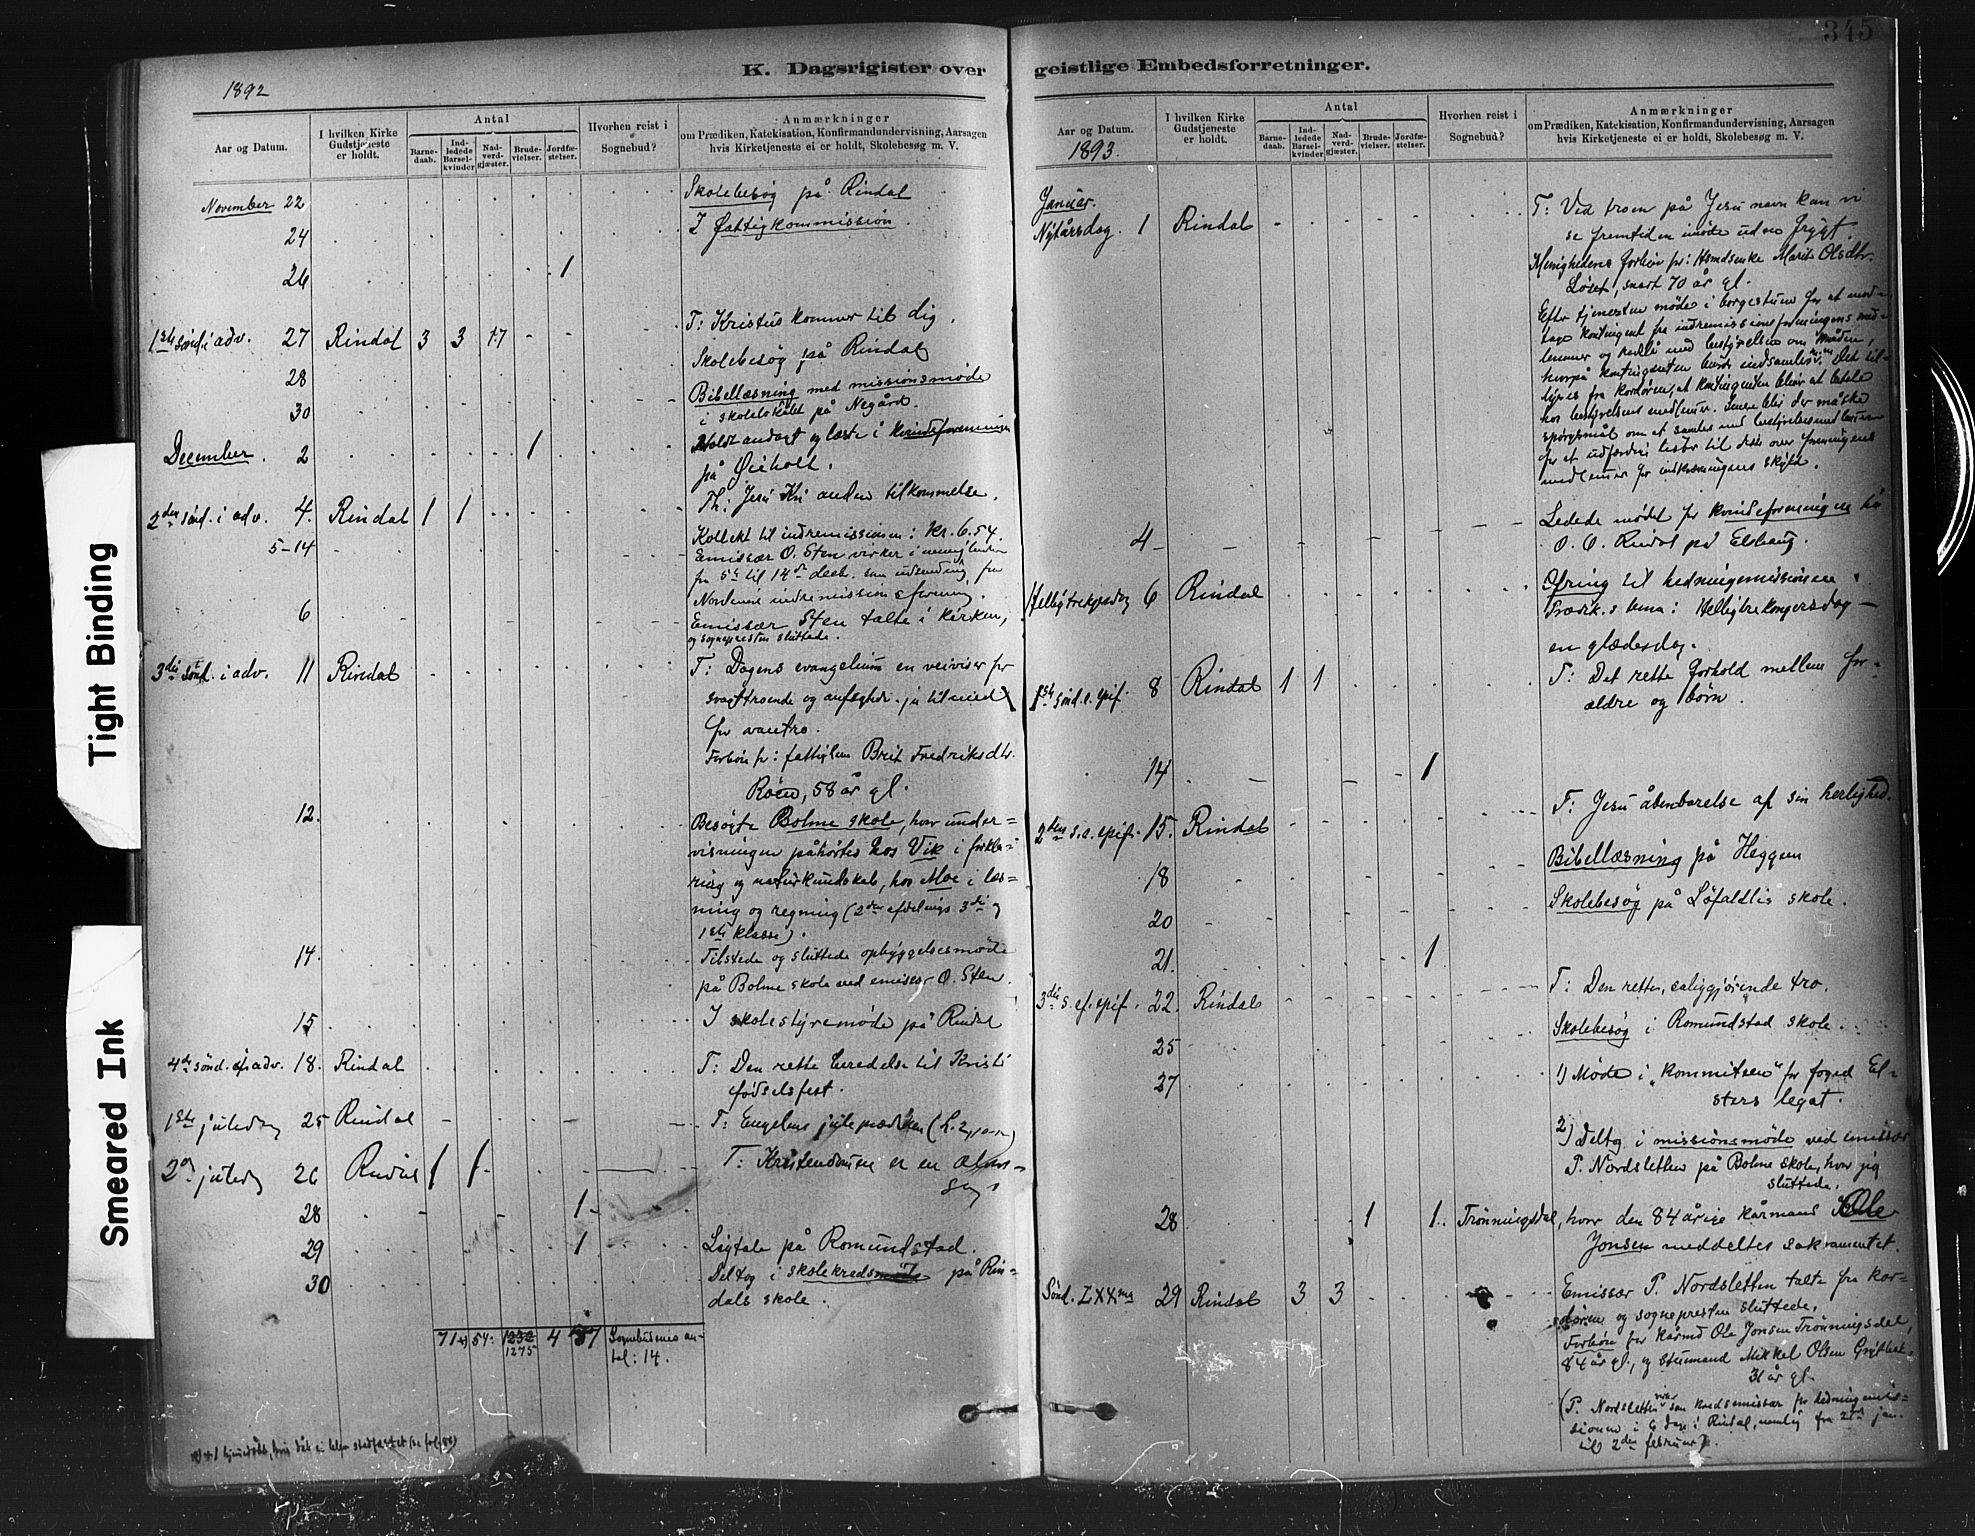 345
K. Dagsrigister over geistlige Embedsforretninger.
1892
Aar og Datum.
I hvilken Kirke Gudstjeneste er holdt.
Antal
Barne-daab.
Ind-ledede Barsel-kvinder
Nad-verd-gjæster.
Brude-vielser.
Jordfæ-stelser.
Hvorhen reist i Sognebud?
Anmærkninger
om Prædiken, Katekisation, Konfirmandundervisning, Aarsagen
hvis Kirketjeneste ei er holdt, Skolebesøg m. V.
November 22 Skolebesøg på Rindal
24 I Fattigkommission.
26 1
1ste sønd. i adv. 27 Rindal 3 3 77 T: Kristus kommer til dig.
28 Skolebesøg på Rindal
30 Bibellæsning med missionsmøde
i skolelokalet på Negård.
December. 2 1 Holdt andagt og læste i kvindeforeningen
på Øieholt.
2den sønd. i adv. 4. Rindal 1 1 Th: Jesu Kri anden tilkommelse.
Kollekt til indremissionen: kr. 6.54.
5-14 Emissær O. Sten virker i menigheden
fra 5te til 14de decb. som udsending fra
Nordmøre indremissionsforening.
6 Emissær Sten talte i kirken,
og sognepresten sluttede.
3die sønd. i adv. 11 Rindal T: Dagens evangelium en veiviser for
svagttroende og anfegtede
for vantro.
Forbøn fr: fattiglem Brit Fredriksdtr.
Røen, 58 år gl.
12. Besøgte Bolme skole, hvor under-
visningen påhørtes hos Vik i forkla-
ring og naturkundskab, hos Moe i læs-
ning og regning (2den afdelings 3die og
1ste klasse).
14. Tilstede og sluttede opbyggelsesmøde
på Bolme skole ved emissær O. Sten.
15 I skolestyremøde på Rindal
4de sønd. i adv. 18. Rindal T: Den rette beredelse til Kristi
fødselsfest.
1ste juledag 25 Rindal T: Englens juleprædiken (L. 2,10-12)
2den juledag 26 Rindal 1 1 T: Kristendommen er en
28 1
29 1 Ligtale på Romundstad.
30 Deltog i skolekredsmøde på Rin-
dals skole.
71 54 1232 4 37 Sognebudenes an-
1275 tal: 14.
Aar og Datum.
1893.
I hvilken Kirke Gudstjeneste er holdt.
Antal
Barne-daab.
Ind-ledede Barsel-kvinder
Nad-verd-gjæster.
Brude-vielser.
Jordfæ-stelser.
Hvorhen reist i Sognebud?
Anmærkninger
om Prædiken, Katekisation, Konfirmandundervisning, Aarsagen
hvis Kirketjeneste ei er holdt, Skolebesøg m. V.
Januar.
Nytårsdag. 1 Rindal T: Ved troen på Jesu navn kan vi
se fremtiden imøde uden frygt.
Menighedens forbøn fr: Marit Olsdtr.
Løset, snart 70 år gl.
Efter tjenesten møde i borgestuen for at mod-
tage kontingent fra indremissionsforeningens med-
lemmer og rådslå med bestyrelsen om måden,
hvorpå kontingenten burde indsamles. Det til-
lyses fra kordøren, at kontingenten bliver at betale
hos bestyrelsens medlemmer.
spørgsmål om at samles med bestyrelsesmedlemmerne
for at udfærdige lister til dette over foreningens
medlemmer for indkrævningens skyld.
4 Ledede mødet for kvindeforeningen hos
O. O. Rindal på Elshaug.
Helligtrekgsdag 6 Rindal Ofring til hedningemissionen.
Prædik.s tema: Helligtrekongersdag –
en glædesdag.
1ste sønd. e. epif. 8 Rindal 1 1 T: Det rette forhold mellem for-
ældre og børn.
14 1
2den s. e. epif. 15. Rindal T: Jesu åbenbarelse af sin herlighed.
18 Bibellæsning på Heggem
20 Skolebesøg på Løfaldlis skole.
21. 1
3die s. ef. epif. 22. Rindal T: Den rette, saliggjørende tro.
25 Skolebesøg i Romundstad skole.
27 1) Møde i "kommiteen" for foged El-
sters legat.
2) Deltog i missionsmøde ved emissær
P. Nordsletten på Bolme skole, hvor jeg
sluttede.
28 1 1 Trønningsdal, hvor den 84 årige kårmand Ole
Jonsen meddeltes sakramentet.
Sønd. LXXma 29 Rindal 3 3 Emissær P. Nordsletten talte fra kor-
døren og sognepresten sluttede.
Forbøn for kårmd Ole Jonsen Trønningsdal,
84 år gl., og Mikkel Olsen
31 år gl.
(P. Nordsletten virker som kredsemissær for hedningemis-
sionen i 6 dage i Rindal, nemlig fra jan.
til 2den februar).
Tight Binding
Smeared Ink